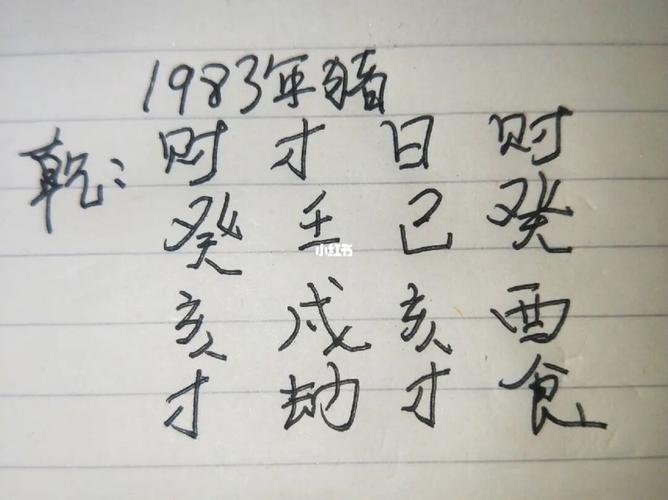 1983年猪
乾: 财 才 日 财
癸 壬 己 癸
小红书
亥 戌 亥 酉
才 劫 才 食